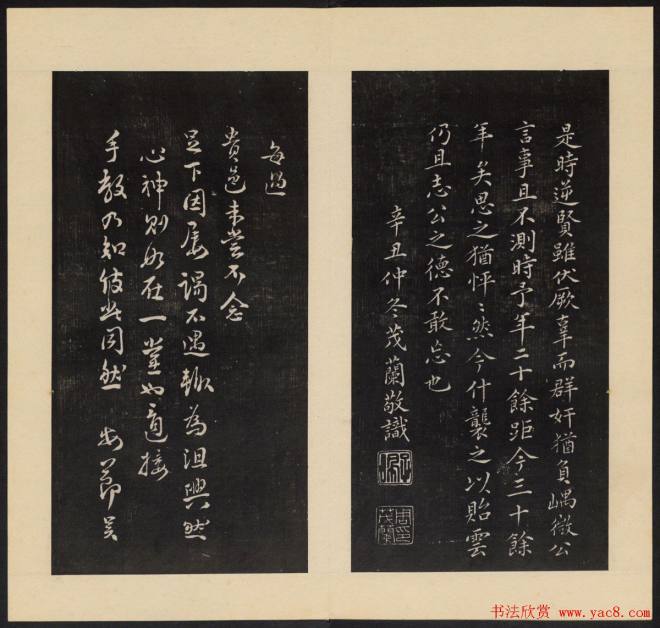 是時逆賢雖伏厥辜而群奸猶負嵎微公
言事且不測時予年二十餘距今三十餘
年矣思之猶怦〻然今什襲之以貽雲
仍且志公之德不敢忘也
辛丑仲冬茂蘭敬識
周印茂蘭
每過
貴邑未嘗不念
足下因屡謁不遇輒為沮興然
心神則如在一堂也適接
手教乃知彼此同然
书法欣赏 www.yac8.com